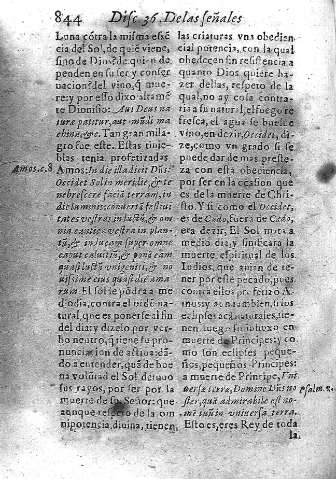 844 Disc. 36. De las señales
Luna cõtra la misma esẽ
cia del Sol, de quiẽ viene,
sino de Dios de quien de
penden en su ser y conser
nacion el del vino, q̃ mue
re; y por esso dixo altamẽ
te Dionisio: Aut Deus na
turæ patitur, aut mũdi ma
china, &c. Tan gran mila
gro fue este. Estas tinie
blas tenia profetizadas
Amos: In die illa dicit Dñs:
Occidet Sol in meridie, & te
nebrescere faciã terram, in
die luminis: conuertã festiui
tates vestras in luctũ, & om
nia cantica vestra in plan-
tũ, & inducam super omne
caput caluitiũ, & ponã eam
quasi luctũ vnigeniti, & no
uissima eius quasi diẽ ama
rum. El Sol se põdrà a me
diodia, contra el ordẽ na-
tural, que es ponerse al fin
del dia: y dizelo por ver
bo neutro, q̃ tiene su pro
nunciacion de actiua, dã
do a entender, que de bue
na volũtad el Sol detuuo
sus rayos, por ser por la
muerte de su Señor: que
aunque respeto de la om
nipotencia diuina, tienen
Amos. c. 8
las criaturas vna obedien
cial potencia, con la qual
obedecen sin resistencia a
quanto Dios quiere ha-
zer dellas, respeto de la
qual, no ay cosa contra-
ria a su natural, el fuego re
fresca, el agua se buelue
vino, en dezir, Occidet, di-
ze, como vn grado si se
puede dar de mas preste-
za con esta obediencia,
por ser en la ocasion que
es de la muerte de Chri-
sto. Y si como el Occidet,
es de Cado, fuera de Cædo,
era dezir, El Sol mata a
medio dia, y significara la
muerte espiritual de los
Iudios, que auian de te-
ner por este pecado, pues
contra ellos profetizò A-
mos: y aun tambien, si los
eclypses aun naturales, tie-
nen luego su influxo en
muerte de Principes; y co
mo son eclypses peque-
ños, pequeños Principes:
a muerte de Principe, Vni
uersæ terræ, Domine Dñs no
ster, quã admirabile est no-
mẽ tuũ in vniuersa terra.
Esto es, eres Rey de toda
la
Psalm. 8.